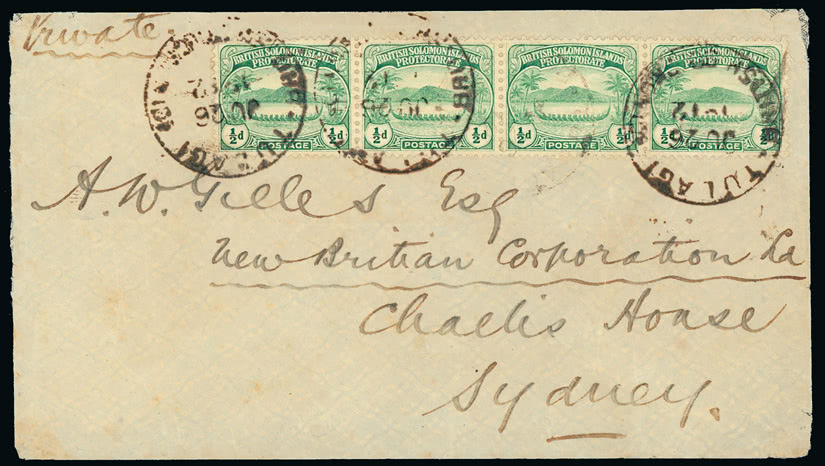 Private.
BRITISH SOLOMON ISLANDS PROTECTORATE ½d ½d POSTAGE
BRITISH SOLOMON ISLANDS PROTECTORATE ½d ½d POSTAGE
BRITISH SOLOMON ISLANDS PROTECTORATE ½d ½d POSTAGE
BRITISH SOLOMON ISLANDS PROTECTORATE ½d ½d POSTAGE
TULAGI
JU 26
12
TULAGI
A. W. Gilles Esq
New Britian Corporation Ld
Challis House
Sydney.